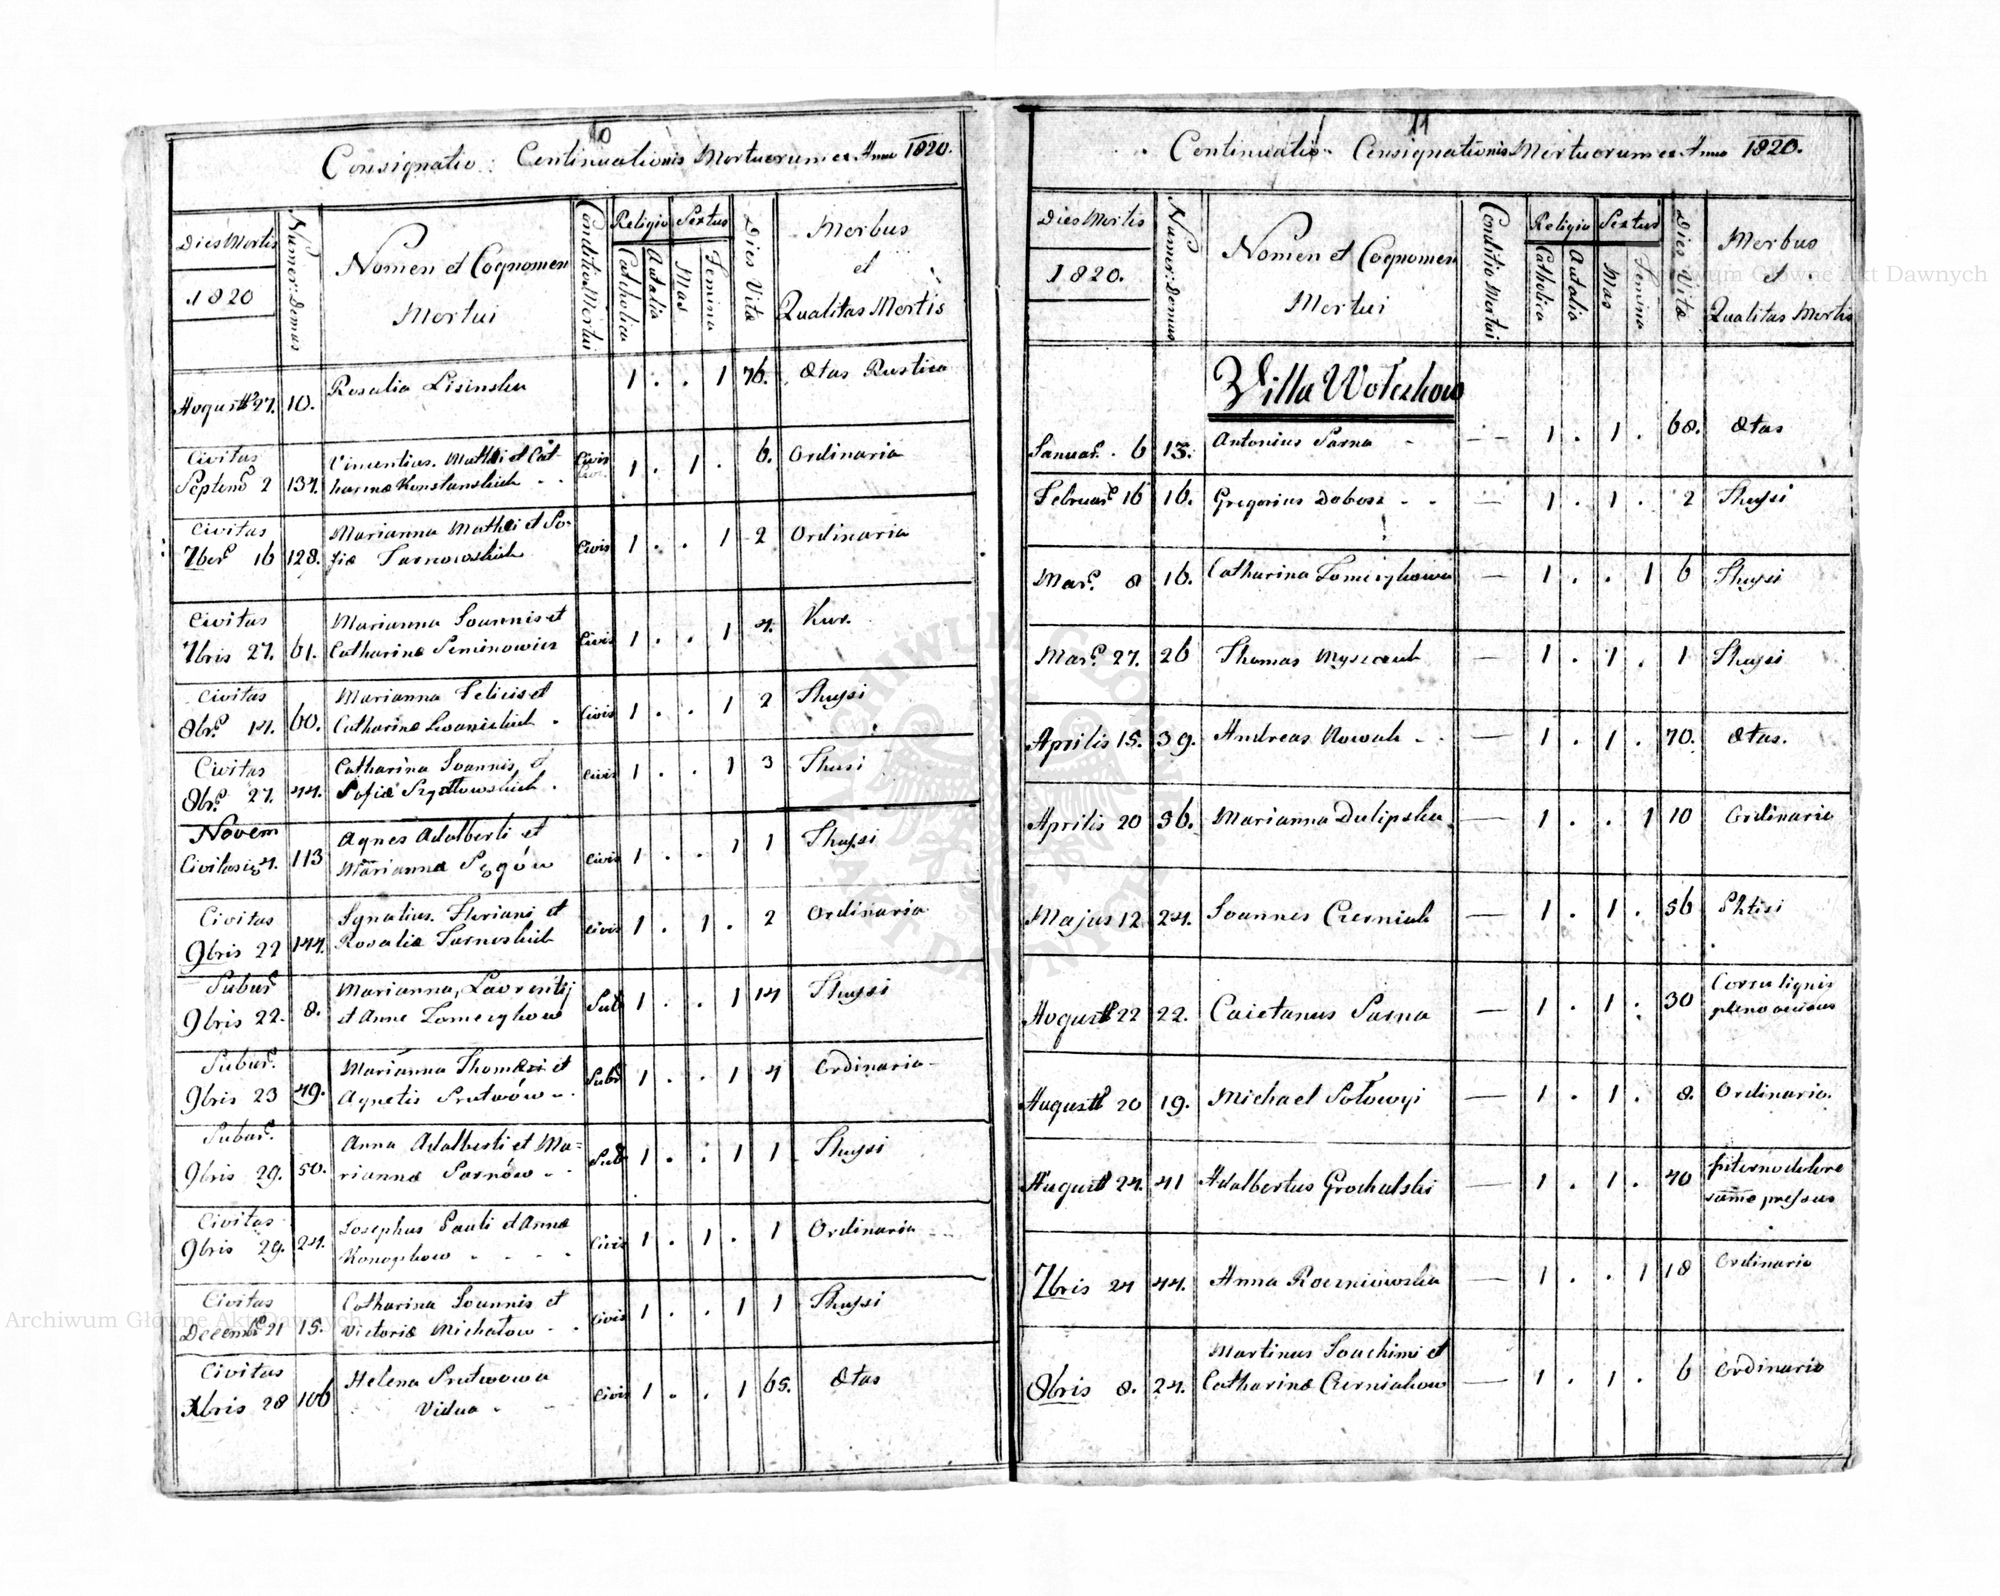 10
Consignatio Continuationis Mortuorum ex Anno 1820.
Dies Mortis
1820
Numeri Domus
Nomen et Cognomen
Mortui
Conditio Mortui
Religio
Catholica
Autalia
Sextus
Mas
Femina
Dies Vitæ
Morbus
et
Qualitas Mortis
August 27. 10. Rosalia Lisinska 1 . . 1 76. Ætas Rustica
Civitas
Septem 2 134. Vincentius Mathei et Cat-
harinæ Konstanskich Civis 1 . 1 . 6. Ordinaria
Civitas
7ber 16 128. Marianna Mathei et So-
fiæ Tarnowskich Civis 1 . . 1 2 Ordinaria
Civitas
7bris 27. 61. Marianna Joannis et
Catharinæ Seminowicz Civis 1 . . 1 4. Kur.
Civitas
8br 14. 60. Marianna Felicis et
Catharinæ Iwanickich Civis 1 . . 1 2 Thussi
Civitas
8br 27. 44. Catharina Joannis et
Sofiæ Szydłowskich Civis 1 . . 1 3 Thusi
Novem
Civitas 4. 113 Agnes Adalberti et
Marianna Civis 1 . . 1 1 Thussi
Civitas
9bris 22 144. Ignatius Floriani et
Rosaliæ Tarnoskich Civis 1 . 1 . 2 Ordinaria
Subur
9bris 22. 8. Marianna, Laurentij
et Anne Tomczykow Sub 1 . . 1 14 Thussi
Subur
9bris 23 49. Marianna Thomæ et
Agnetis Prutwów Sub 1 . . 1 4 Ordinaria
Subur
9bris 29. 50. Anna Adalberti et Ma-
riannæ Sarnów Sub 1 . . 1 1 Thussi
Civitas
9bris 29. 24. Josephus Pauli et Annæ
Konopkow Civis 1 . 1 . 1 Ordinaria
Civitas
Decemb 21 15. Catharina Joannis et
Victoriæ Michałow Civis 1 . . 1 1 Thussi
Civitas
Xbris 28 106 Helena Prutwowa
Vidua Civis 1 . . 1 65. Ætas
11
Continuatio Consignationis Mortuorum ex Anno 1820.
Dies Mortis
1820.
Numeri Domus
Nomen et Cognomen
Mortui
Conditio Mortui
Religio
Catholica
Autalia
Sextus
Mas
Femina
Dies Vitæ
Morbus
et
Qualitas Mortis
Villa Wołczkow
Januar. 6 13. Antonius Sarna — 1 . 1 . 68. Ætas
Februar 16 16. Gregorius Dobosz — 1 . 1 . 2 Thussi
Mar. 8 16. Catharina Tomczykowa — 1 . . 1 6 Thussi
Mar. 27. 26 Thomas — 1 . 1 . 1 Thussi
Aprilis 15. 39. Andreas Nowak — 1 . 1 . 70. Ætas.
Aprilis 20 36. Marianna Dulipska — 1 . . 1 10 Ordinaria
Majus 12 24. Joannes Czerniak — 1 . 1 . 56 Phtisi
August 22 22. Caietanus Sarna — 1 . 1 . 30 Curru lignis
pleno occisus
August 20 19. Michael Sołowyi — 1 . 1 . 8. Ordinaria.
August 24. 41 Adalbertus Grochalski — 1 . 1 . 40
7bris 24 44. Anna Roczniowska — 1 . . 1 18 Ordinario
8bris 8. 24. Martinus Joachimi et
Catharinæ Czerniakow — 1 . 1 . 6 Ordinario
Archiwum Główne Akt Dawnych
Archiwum Główne Akt Dawnych
ARCHIWUM GŁÓWNE AKT DAWNYCH